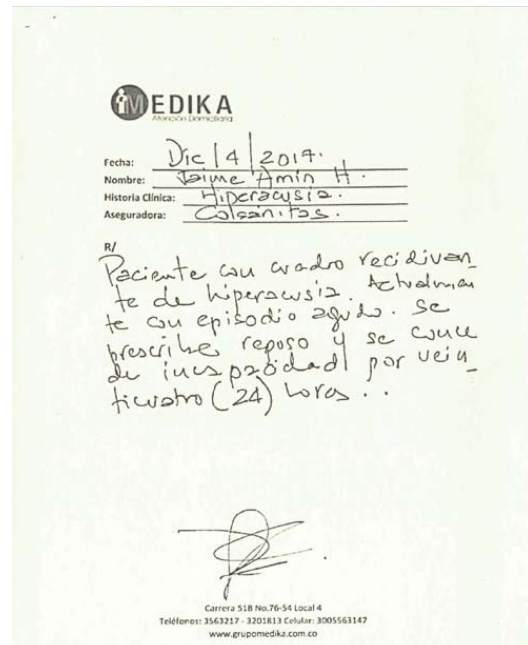 MEDIKA
Atención Domiciliaria
Fecha: Dic/4/2014.
Nombre: Jaime Amín H.
Historia Clínica: Hiperacusia.
Aseguradora: Colsanitas.
R/
Paciente con cuadro recidivan_
te de hiperacusia. Actualmen
te con episodio agudo. Se
prescribe reposo y se conce
de incapacidad por vein_
ticuatro (24) horas..
Carrera 51B No.76-54 Local 4
Teléfonos: 3563217 - 3201813 Celular: 3005563147
www.grupomedika.com.co